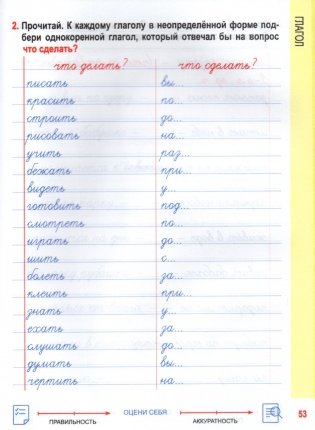 ГЛАГОЛ
2. Прочитай. К каждому глаголу в неопределённой форме под-
бери однокоренной глагол, который отвечал бы на вопрос
что сделать?
что делать? что сделать?
писать вы...
красить по...
строить до...
рисовать на...
учить раз...
бежать при...
видеть у...
готовить под...
смотреть по...
играть до...
шить с...
болеть за...
клеить при...
знать у...
ехать за...
слушать до...
думать вы...
чертить на...
ОЦЕНИ СЕБЯ
ПРАВИЛЬНОСТЬ АККУРАТНОСТЬ
53